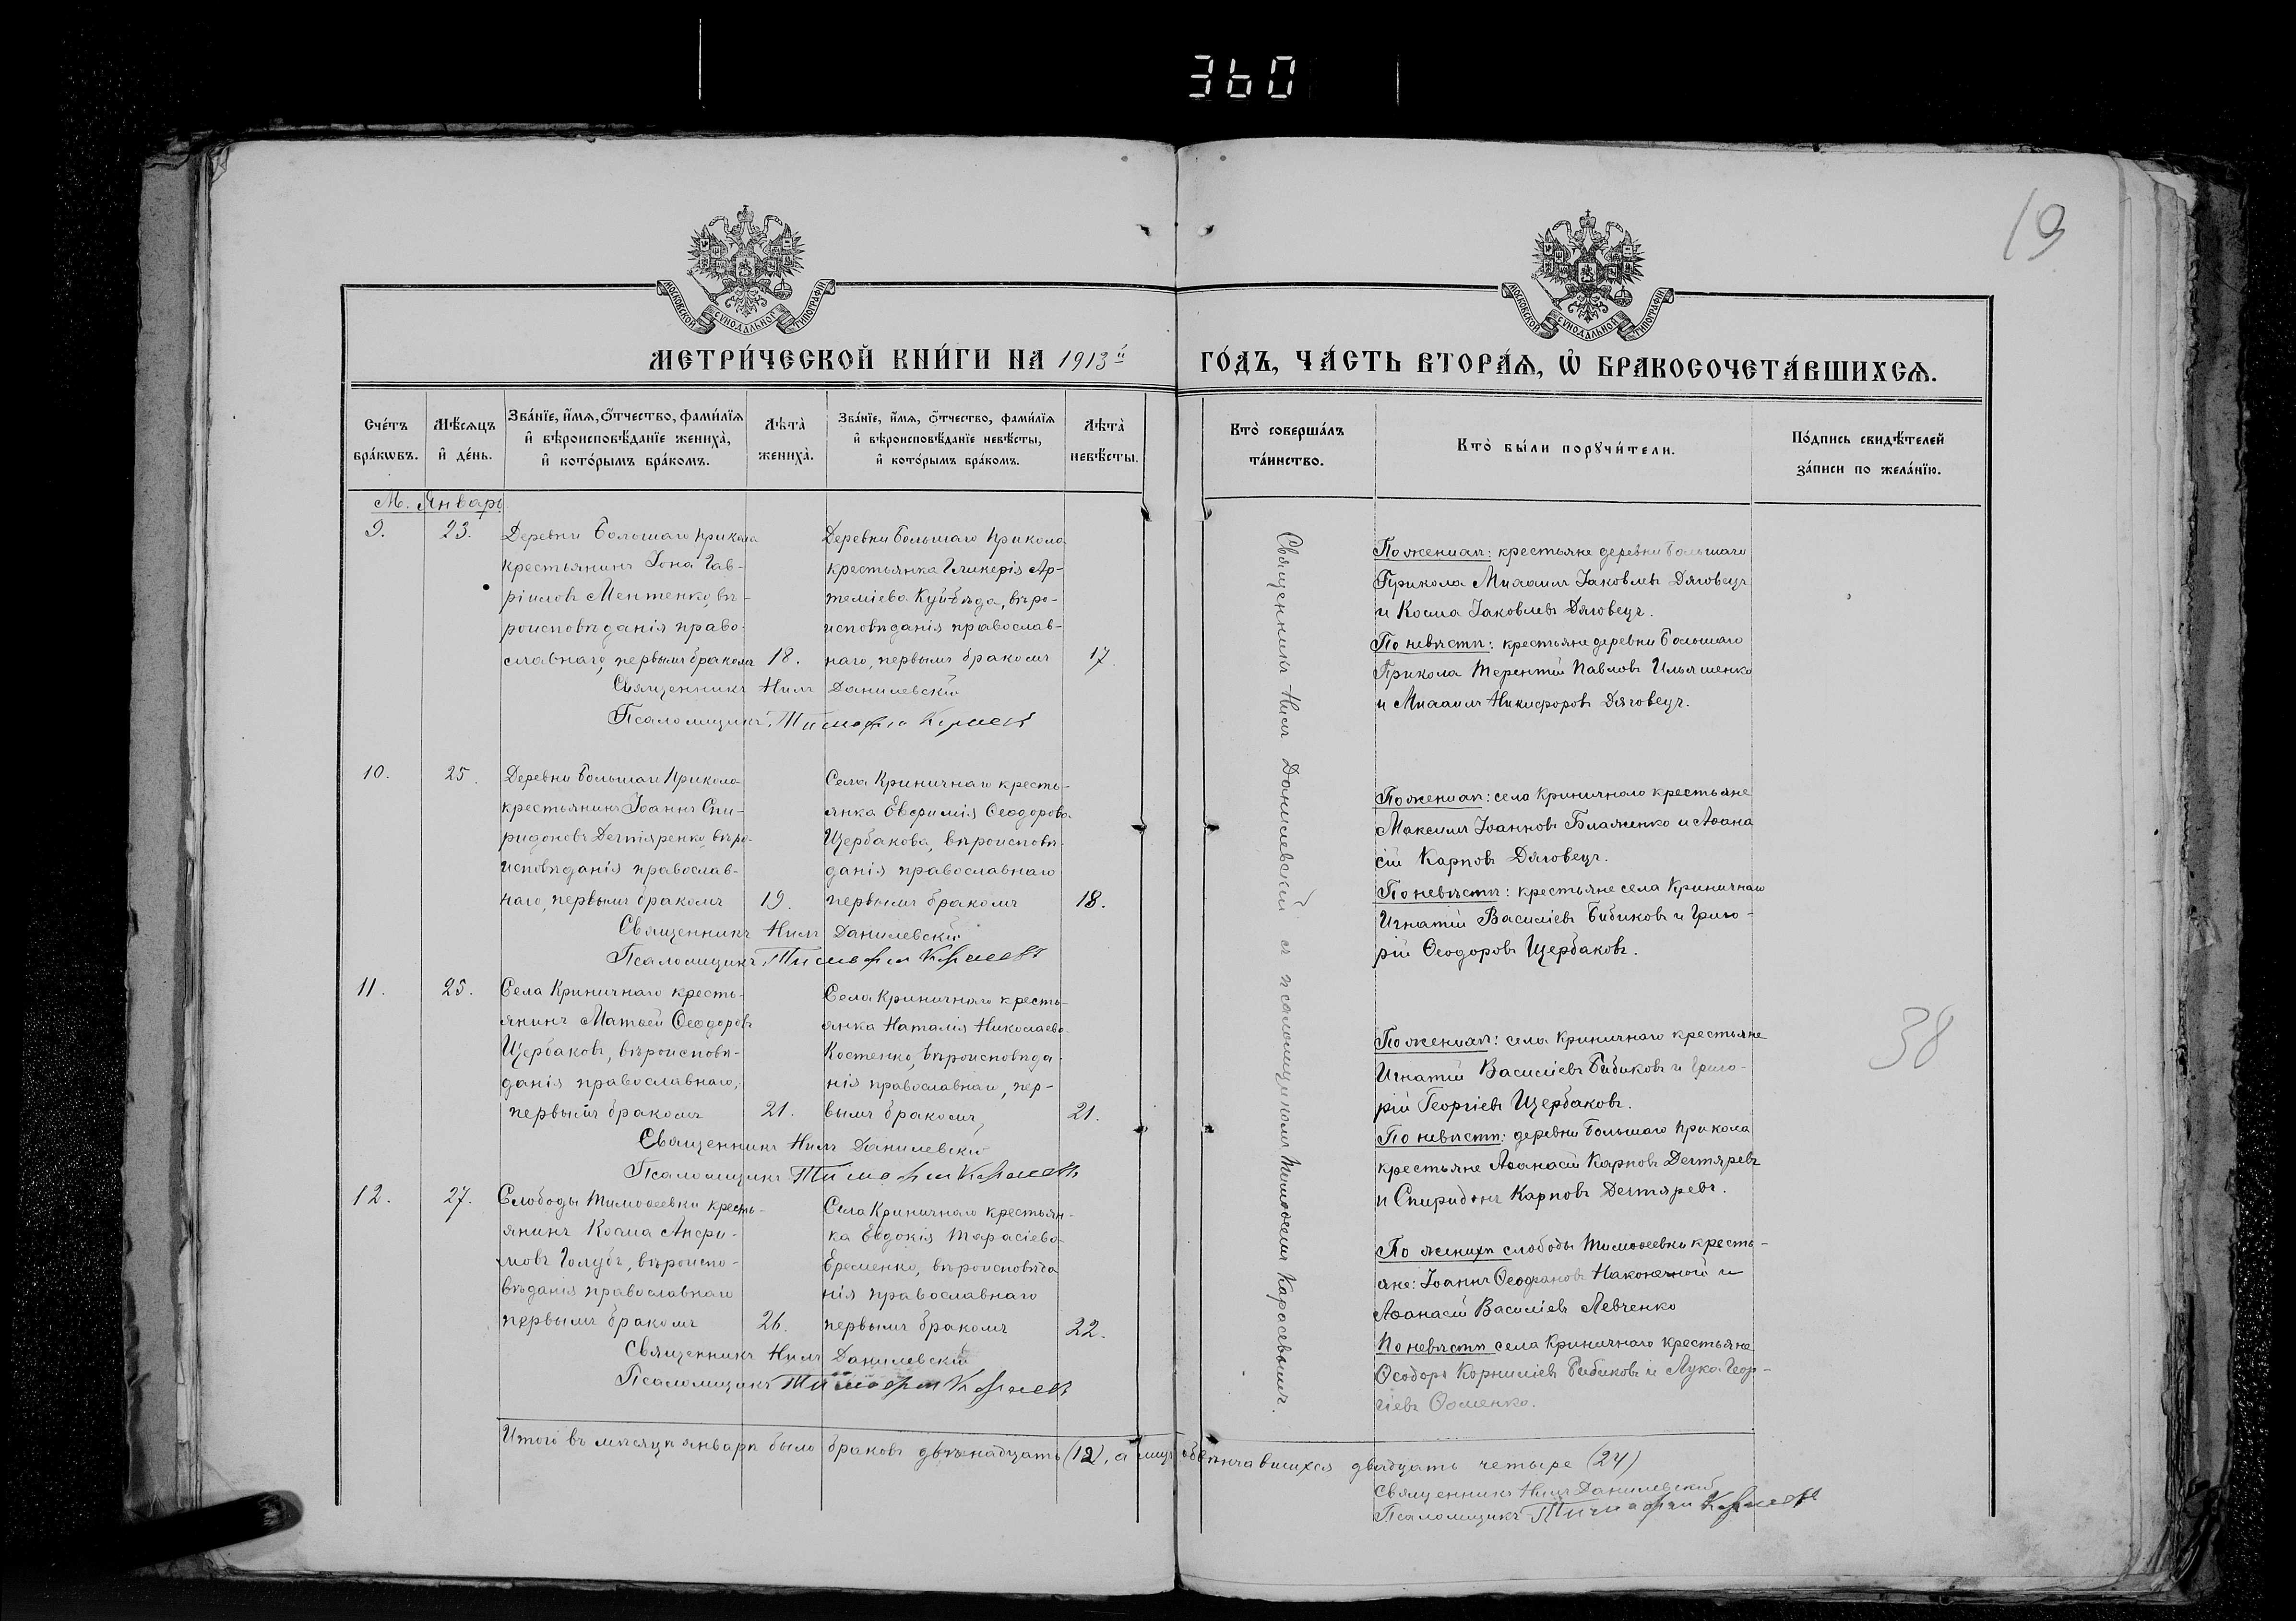 360
19
МОСКОВСКОЙ СѴНОДАЛЬНОЙ ТИПОГРАФІИ
МОСКОВСКОЙ СѴНОДАЛЬНОЙ ТИПОГРАФІИ
МЕТРИ́ЧЕСКОЙ КНИ́ГИ НА 1913й ГО́ДЪ, ЧА́СТЬ ВТОРА́Ѧ, Ѡ҆ БРАКОСОЧЕТА́ВШИХСѦ.
Сче́тъ
бра́кѡвъ.
Мѣ́сѧцъ
и҆ де́нь.
Зва́нїе, и҆́мѧ, о҆́тчество, фами́лїѧ
и҆ вѣроисповѣ́данїе жениха̀,
и҆ кото́рымъ бра́комъ.
Лѣта̀
жениха̀.
Зва́нїе, и҆́мѧ, о҆́тчество, фами́лїѧ
и҆ вѣроисповѣ́данїе невѣ́сты,
и҆ кото́рымъ бра́комъ.
Лѣта̀
невѣ́сты.
Кто̀ соверша́лъ
та́инство.
Кто̀ бы́ли порꙋчи́тели.
По́дпись свидѣ́телей
за́писи по жела́нїю.
М. Январь
9.
23.
Деревни Большаго Прикола
крестьянинъ Іона Гав-
ріиловъ Ментенко, вѣ-
роисповѣданія право-
славнаго, первымъ бракомъ
18.
Деревни Большаго Прикола
крестьянка Гликерія Ар-
теміева Куйбѣда, вѣро-
исповѣданія православ-
наго, первымъ бракомъ
17.
Священникъ Нилъ Данилевскій
Псаломщикъ Тимофей
По женихѣ: крестьяне деревни Большаго
Прикола Михаилъ Іаковлевъ Дяговецъ
и Косма Іаковлевъ Дяговецъ.
По невѣстѣ: крестьяне деревни Большаго
Прикола Терентій Павловъ Ильяшенко
и Михаилъ Никифоровъ Дяговецъ.
10.
25.
Деревни Большаго Прикола
крестьянинъ Іоаннъ Спи-
ридоновъ Дегтяренко, вѣро-
исповѣданія православ-
наго, первымъ бракомъ
19.
Села Криничнаго кресть-
янка Евфимія Ѳеодорова
Щербакова, вѣроисповѣ-
данія православнаго
первымъ бракомъ
18.
Священникъ Нилъ Данилевскій
Псаломщикъ Тимофей
По женихѣ: села Криничнаго крестьяне
Максимъ Іоанновъ Блаженко и Аѳана
сій Карповъ Дяговецъ.
По невѣстѣ: крестьяне села Криничнаго
Игнатій Василіевъ Бибиковъ и Григо-
рій Ѳеодоровъ Щербаковъ.
11.
25.
Села Криничнаго кресть-
янинъ Матѳей Ѳеодоровъ
Щербаковъ, вѣроисповѣ-
данія православнаго,
первымъ бракомъ
21.
Села Криничнаго кресть-
янка Наталія Николаева
Костенко, вѣроисповѣда-
нія православнаго, пер-
вымъ бракомъ,
21.
Священникъ Нилъ Данилевскій
Псаломщикъ Тимофей
По женихѣ: села Криничнаго крестьяне
Игнатій Василіевъ Бибиковъ и Григо-
рій Георгіевъ Щербаковъ.
По невѣстѣ: деревни Большаго Прикола
крестьяне Аѳанасій Карповъ Дегтяревъ
и Спиридонъ Карповъ Дегтяревъ.
38
12.
27.
Слободы Тимоѳеевки кресть-
янинъ Косма Анфи-
мовъ Голубъ, вѣроиспо-
вѣданія православнаго
первымъ бракомъ
26.
Села Криничнаго крестьян-
ка Евдокія Тарасіева
Еременко, вѣроисповѣда
нія православнаго
первымъ бракомъ
22.
Священникъ Нилъ Данилевскій
Псаломщикъ Тимофей
По женихѣ слободы Тимоѳеевки кресть-
яне: Іоаннъ Ѳеофановъ Наконечной и
Аѳанасій Василіевъ Левченко
По невѣстѣ села Криничнаго крестьяне
Ѳеодоръ Корниліевъ Бибиковъ и Лука Геор-
гіевъ Ѳоменко.
Священникъ Нилъ Данилевскій съ псаломщикомъ Тимоѳеемъ Карасевымъ.
Итого въ мѣсяцѣ январѣ было браковъ двѣнадцать (12), а лицъ обвѣнчавшихся двадцать четыре (24)
Священникъ Нилъ Данилевскій
Псаломщикъ Тимофей